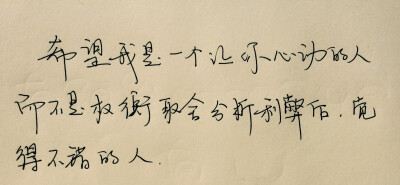 希望我是一个让你心动的人
而不是权衡取舍分析利弊后,觉
得不错的人.